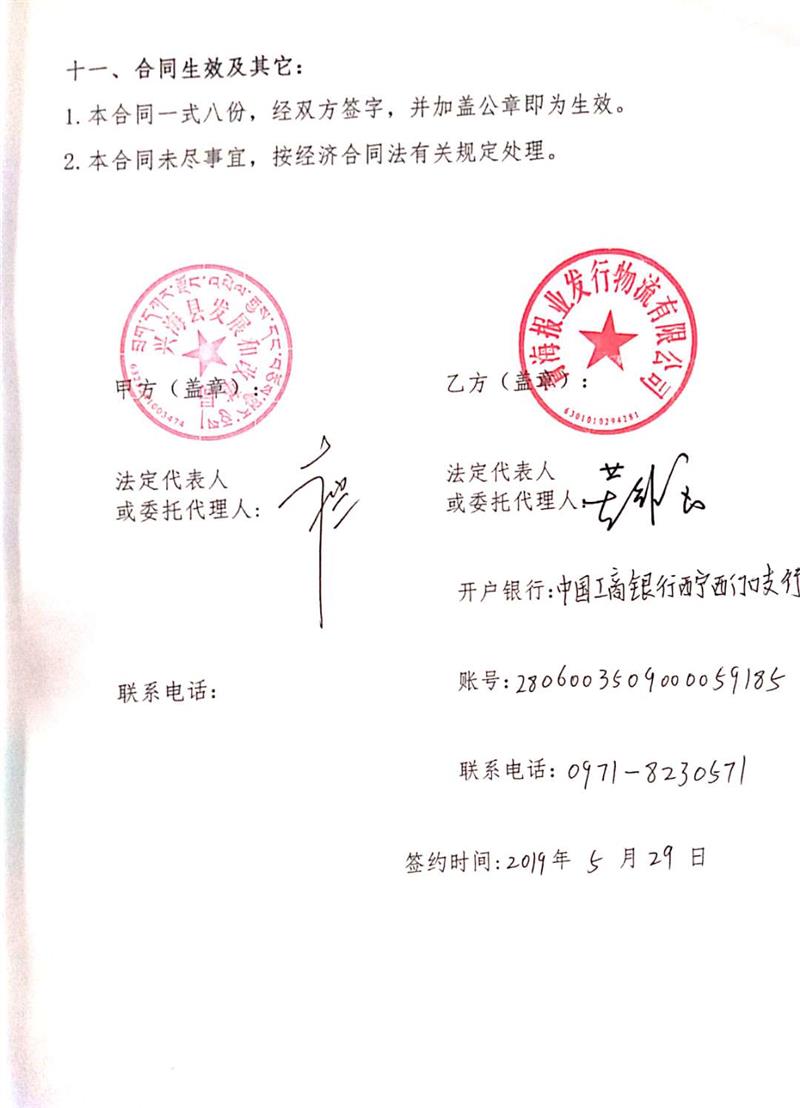 十一、合同生效及其它：
1.本合同一式八份，经双方签字，并加盖公章即为生效。
2.本合同未尽事宜，按经济合同法有关规定处理。
兴海县发展和改革局
甲方（盖章）：
青海报业发行物流有限公司
6301010294281
乙方（盖章）：
法定代表人
或委托代理人：
法定代表人
或委托代理人：
开户银行：中国工商银行西宁西门口支行
联系电话：
账号：2806003509000059185
联系电话：0971-8230571
签约时间：2019年 5 月 29 日